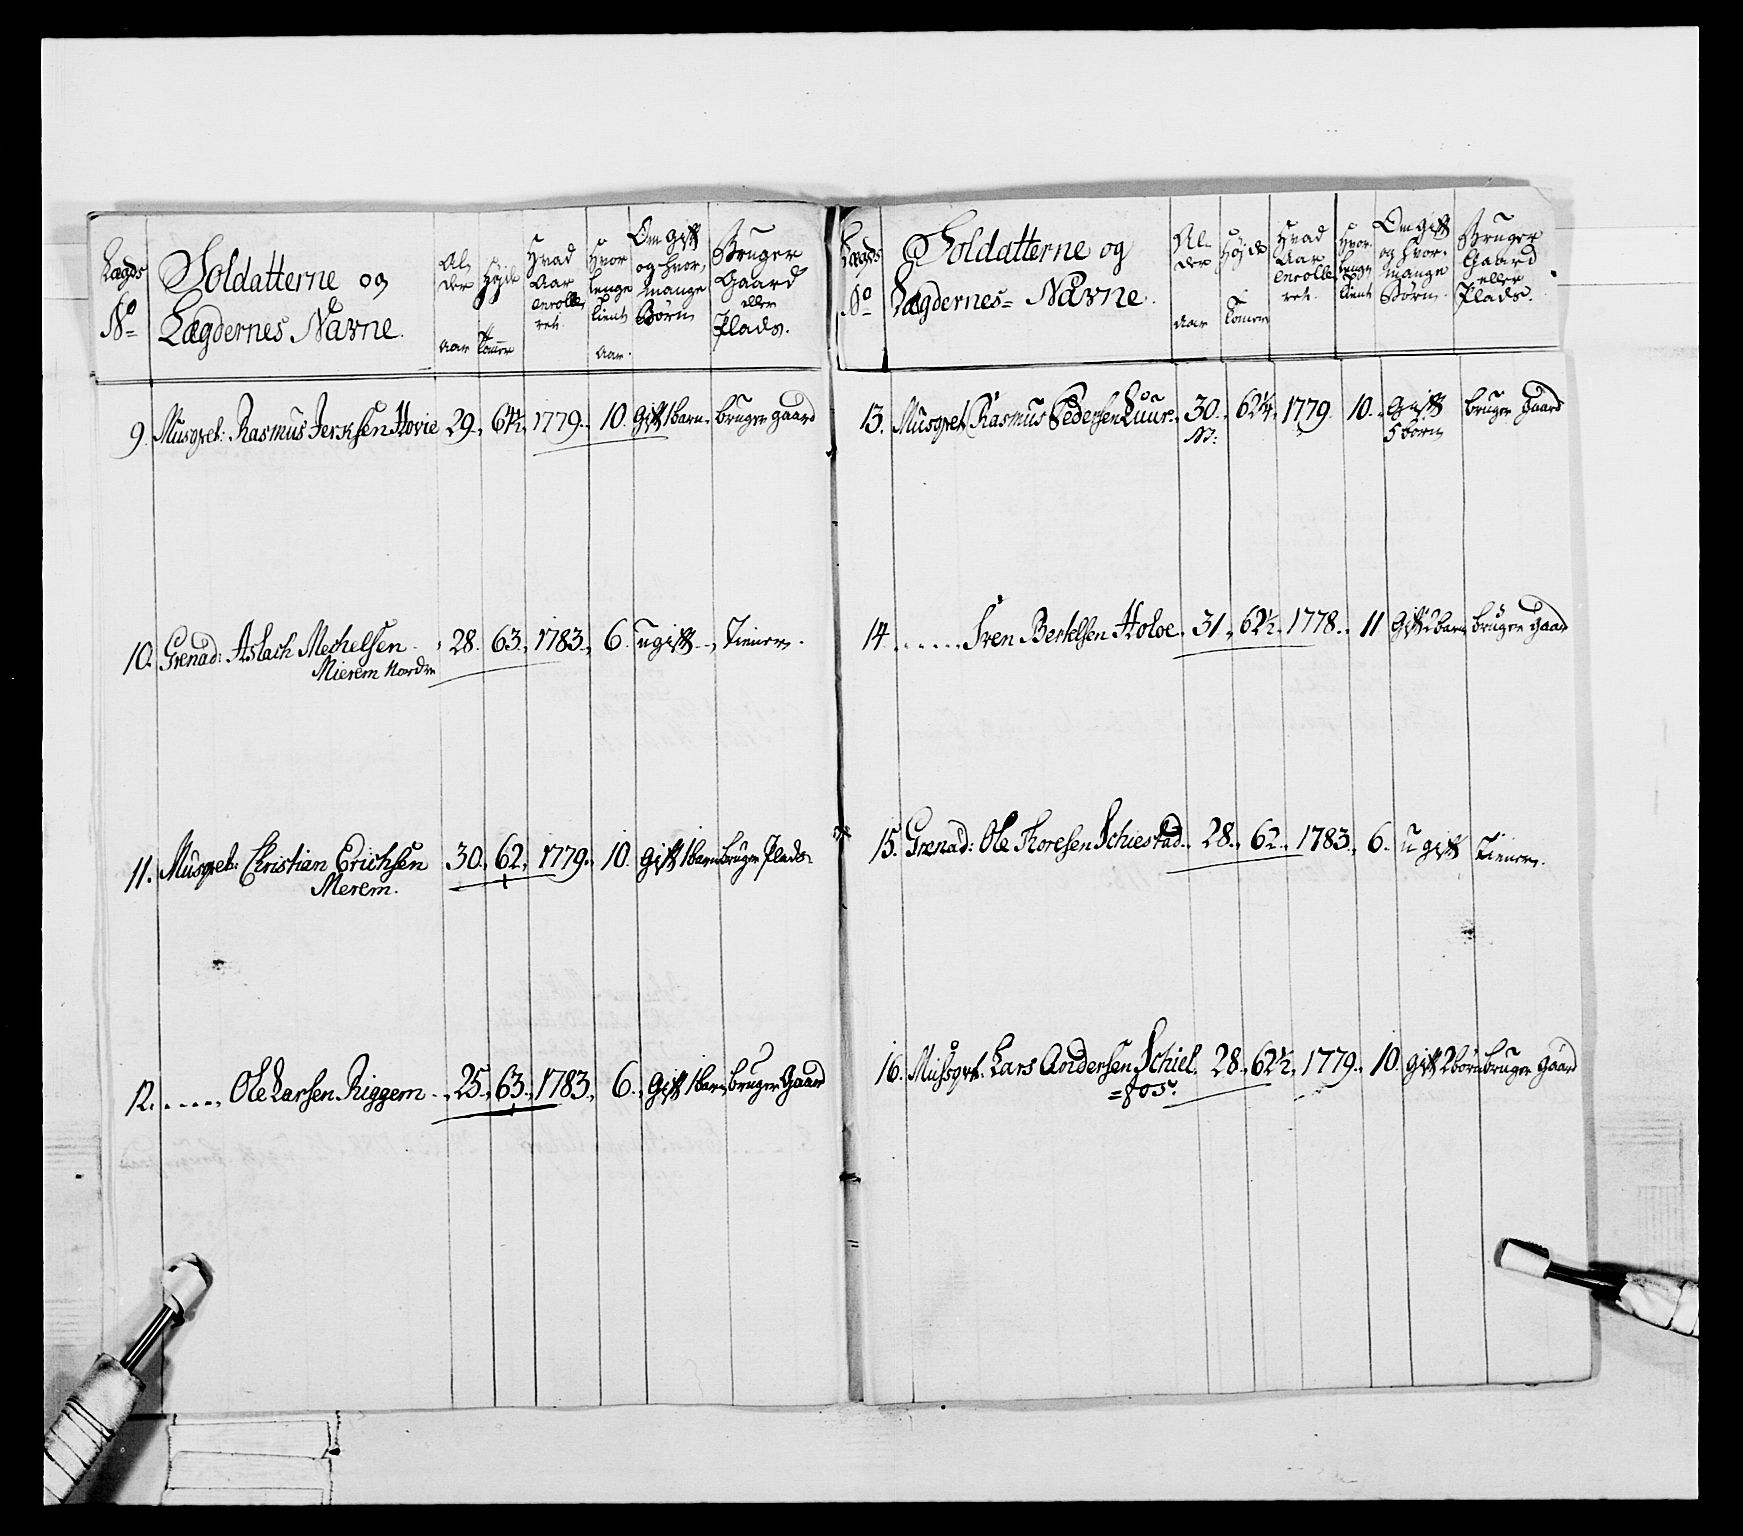 Lægds No
Soldatterne og Lægdernes Navne.
Alder Aar
Høyde Tommer
Hvad Aar enrolleret
Hvor lenge tient Aar.
Om Gift og hvor mange Børn
Bruger Gaard eller Plads.
9. Musqvet: Rasmus Jerksen Hovie 29. 64½ 1779. 10. Gift 1 barn. bruger gaard
10. Grenad: Aslach Mechelsen 28. 63. 1783. 6. ugift Tiener.
Mierem Nordre
11. Musqvet: Christian Erichsen 30. 62. 1779. 10. Gift 1 barn bruger Plads.
Merem.
12. Ole Larsen Riggem 25. 63. 1783. 6. Gift 1 barn, bruger Gaard
Lægds No
Soldatterne og Lægdernes Navne.
Alder Aar
Høyde Tommer
Hvad Aar enrolleret.
Hvor lenge tient
Om Gift og hvor mange Børn.
Bruger Gaard eller Plads.
13. Musqvet Rasmus Pedersen Luur. 30. 62¼. 1779. 10. Gift bruger Gaard
5 børn
14. Sven Bertelsen Holoe. 31. 62½. 1778. 11 Gift 2 barn bruger Gaard
15. Grenad: Ole Thoresen Schiestad. 28. 62. 1783. 6. ugift Tiener.
16. Musqvt. Lars Andersen Schiel 28. 62½. 1779. 10. Gift 2 børn bruger Gaard
=fos.